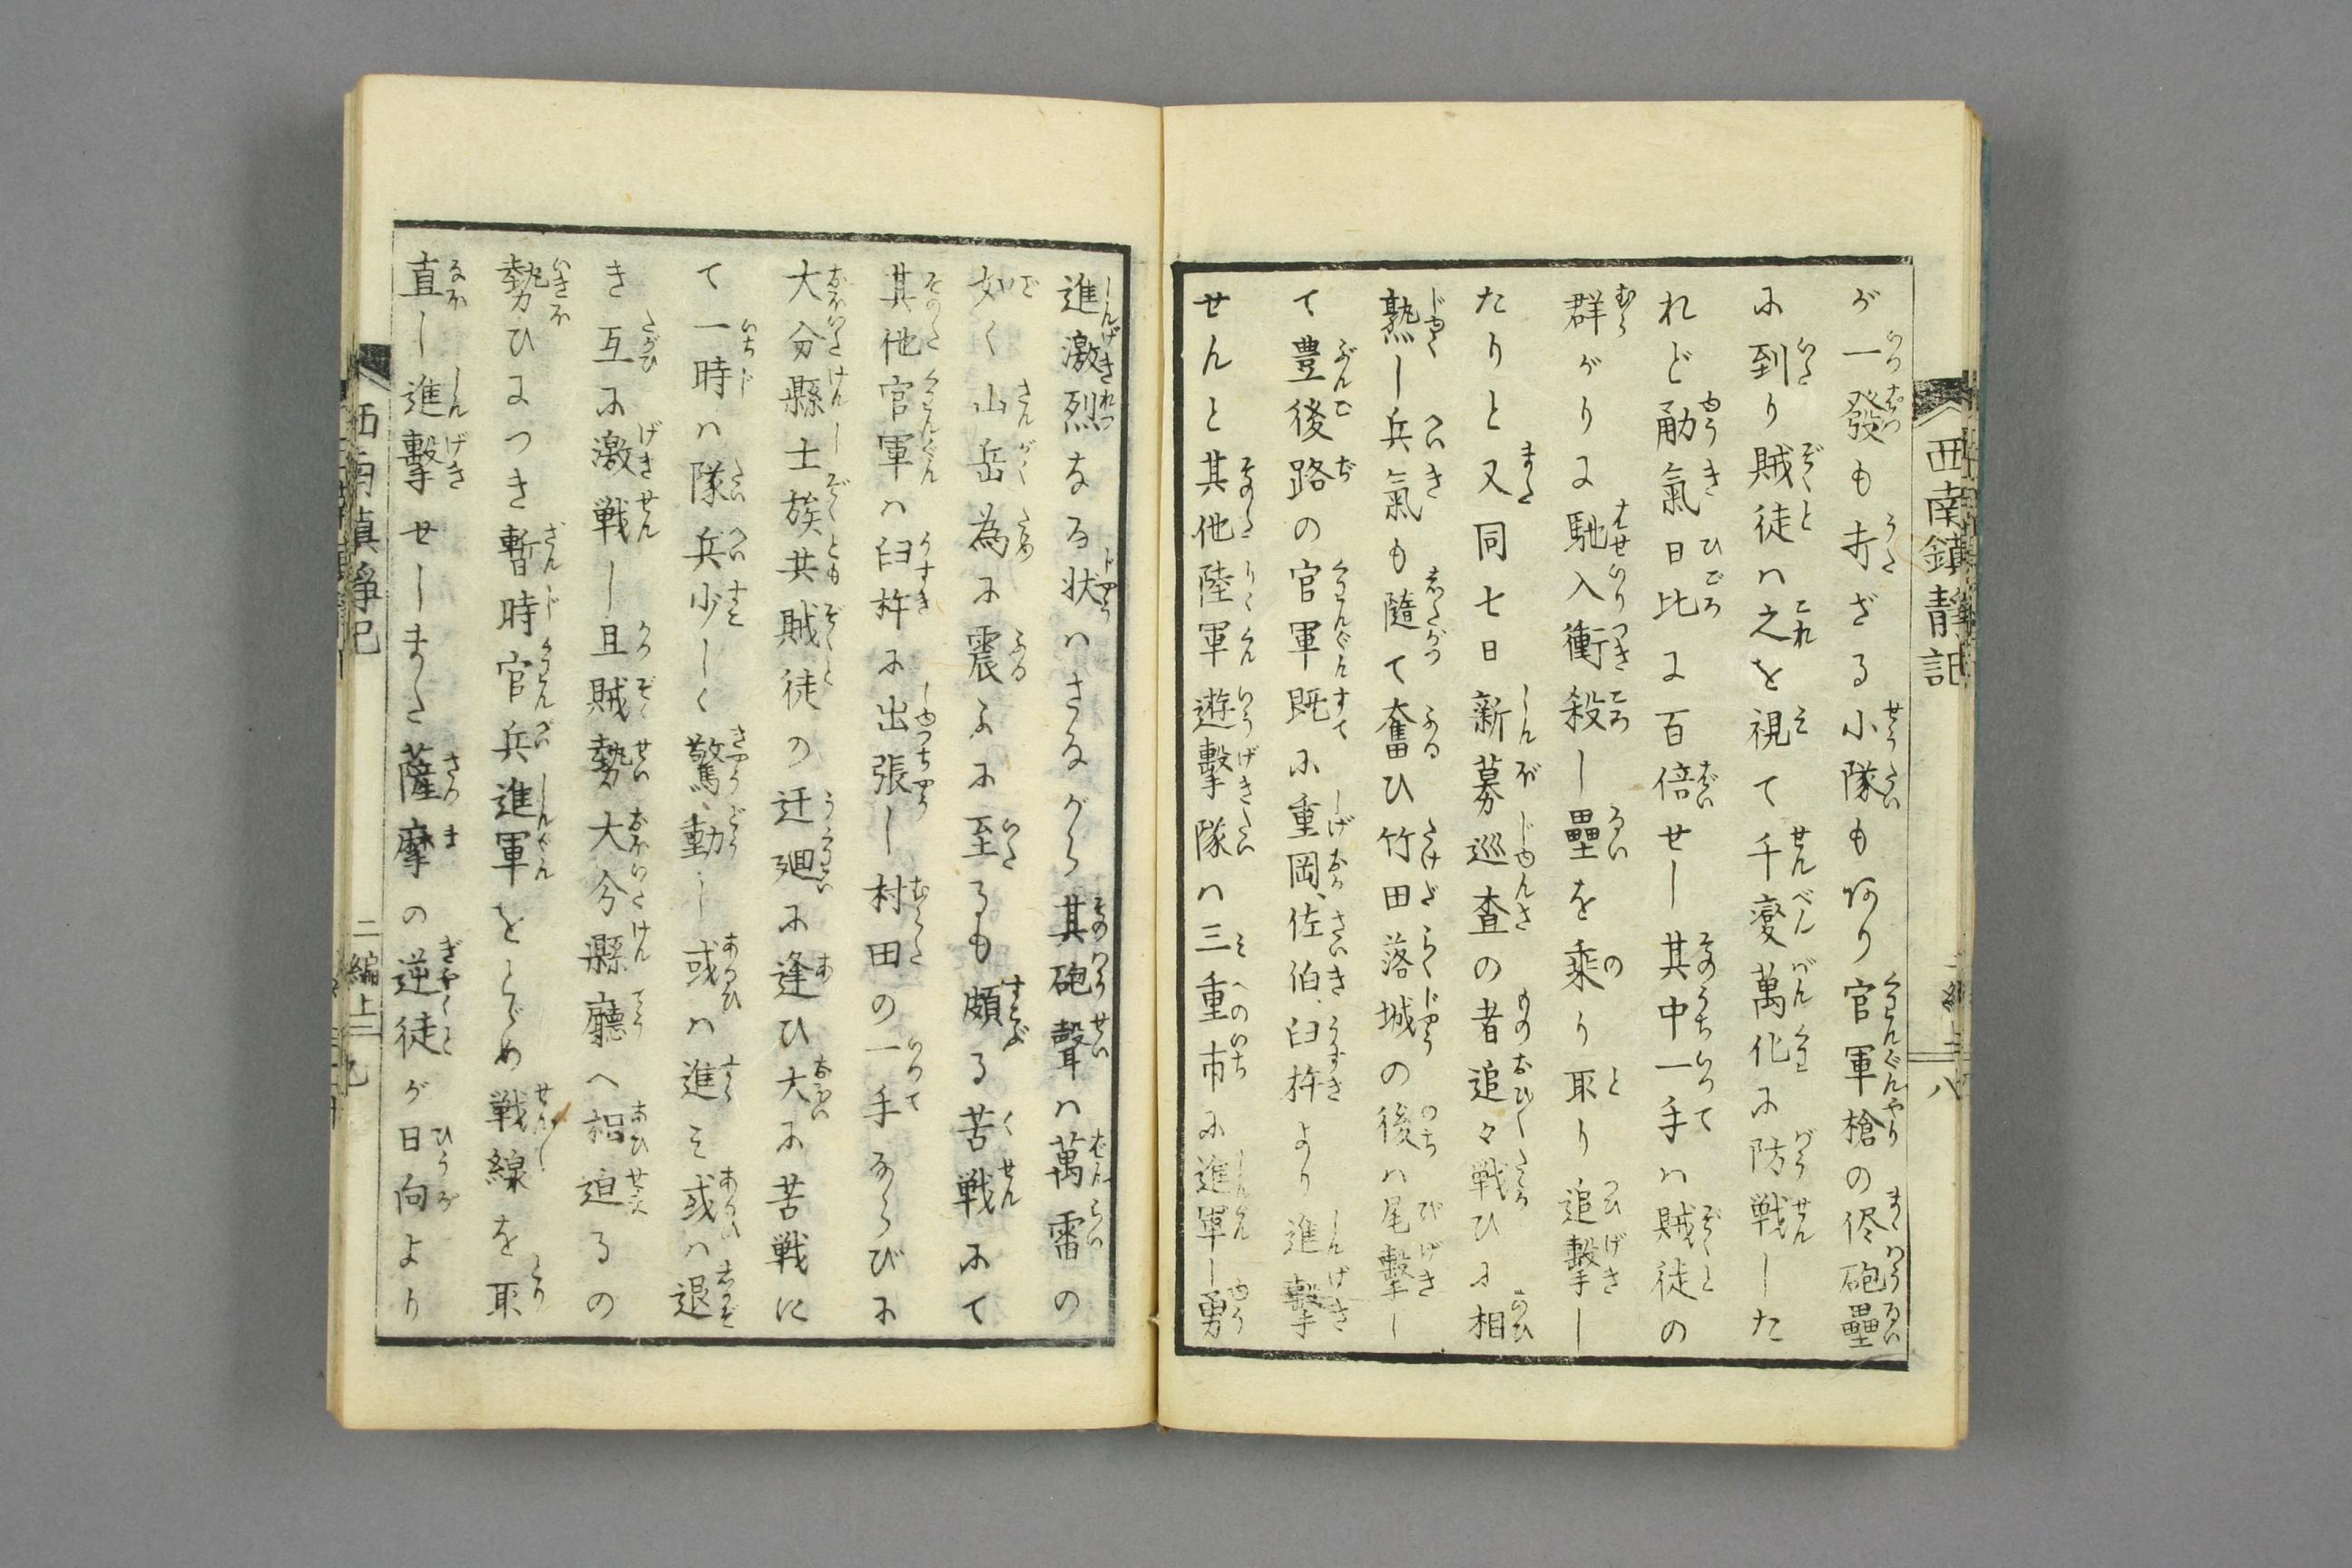 西南鎮靜記
八
が一發も打ざる小隊もあり官軍槍の侭砲壘
に到り賊徒ハ之を視て千變萬化に防戦した
れど勇氣日比に百倍せし其中一手ハ賊徒の
群がりに馳入衝殺し壘を乗り取り追擊し
たりと又同七日新募巡査の者追々戦ひに相
熟し兵氣も隨て奮ひ竹田落城の後ハ尾擊し
て豊後路の官軍既に重岡、佐伯、臼杵より進擊
せんと其他陸軍遊擊隊ハ三重市に進軍し勇
進激烈なる状ハさながら其砲聲ハ萬雷の
如く山岳為に震ふに至るも頗る苦戦にて
其他官軍ハ臼杵に出張し村田の一手ならびに
大分縣士族共賊徒の迂廻に逢ひ大に苦戦に
て一時ハ隊兵少しく驚動し或ハ進ミ或ハ退
き互に激戦し且賊勢大分縣廳へ相迫るの
勢ひにつき暫時官兵進軍をとゞめ戦線を取
直し進擊せしまた薩摩の逆徒が日向より
二編上
九